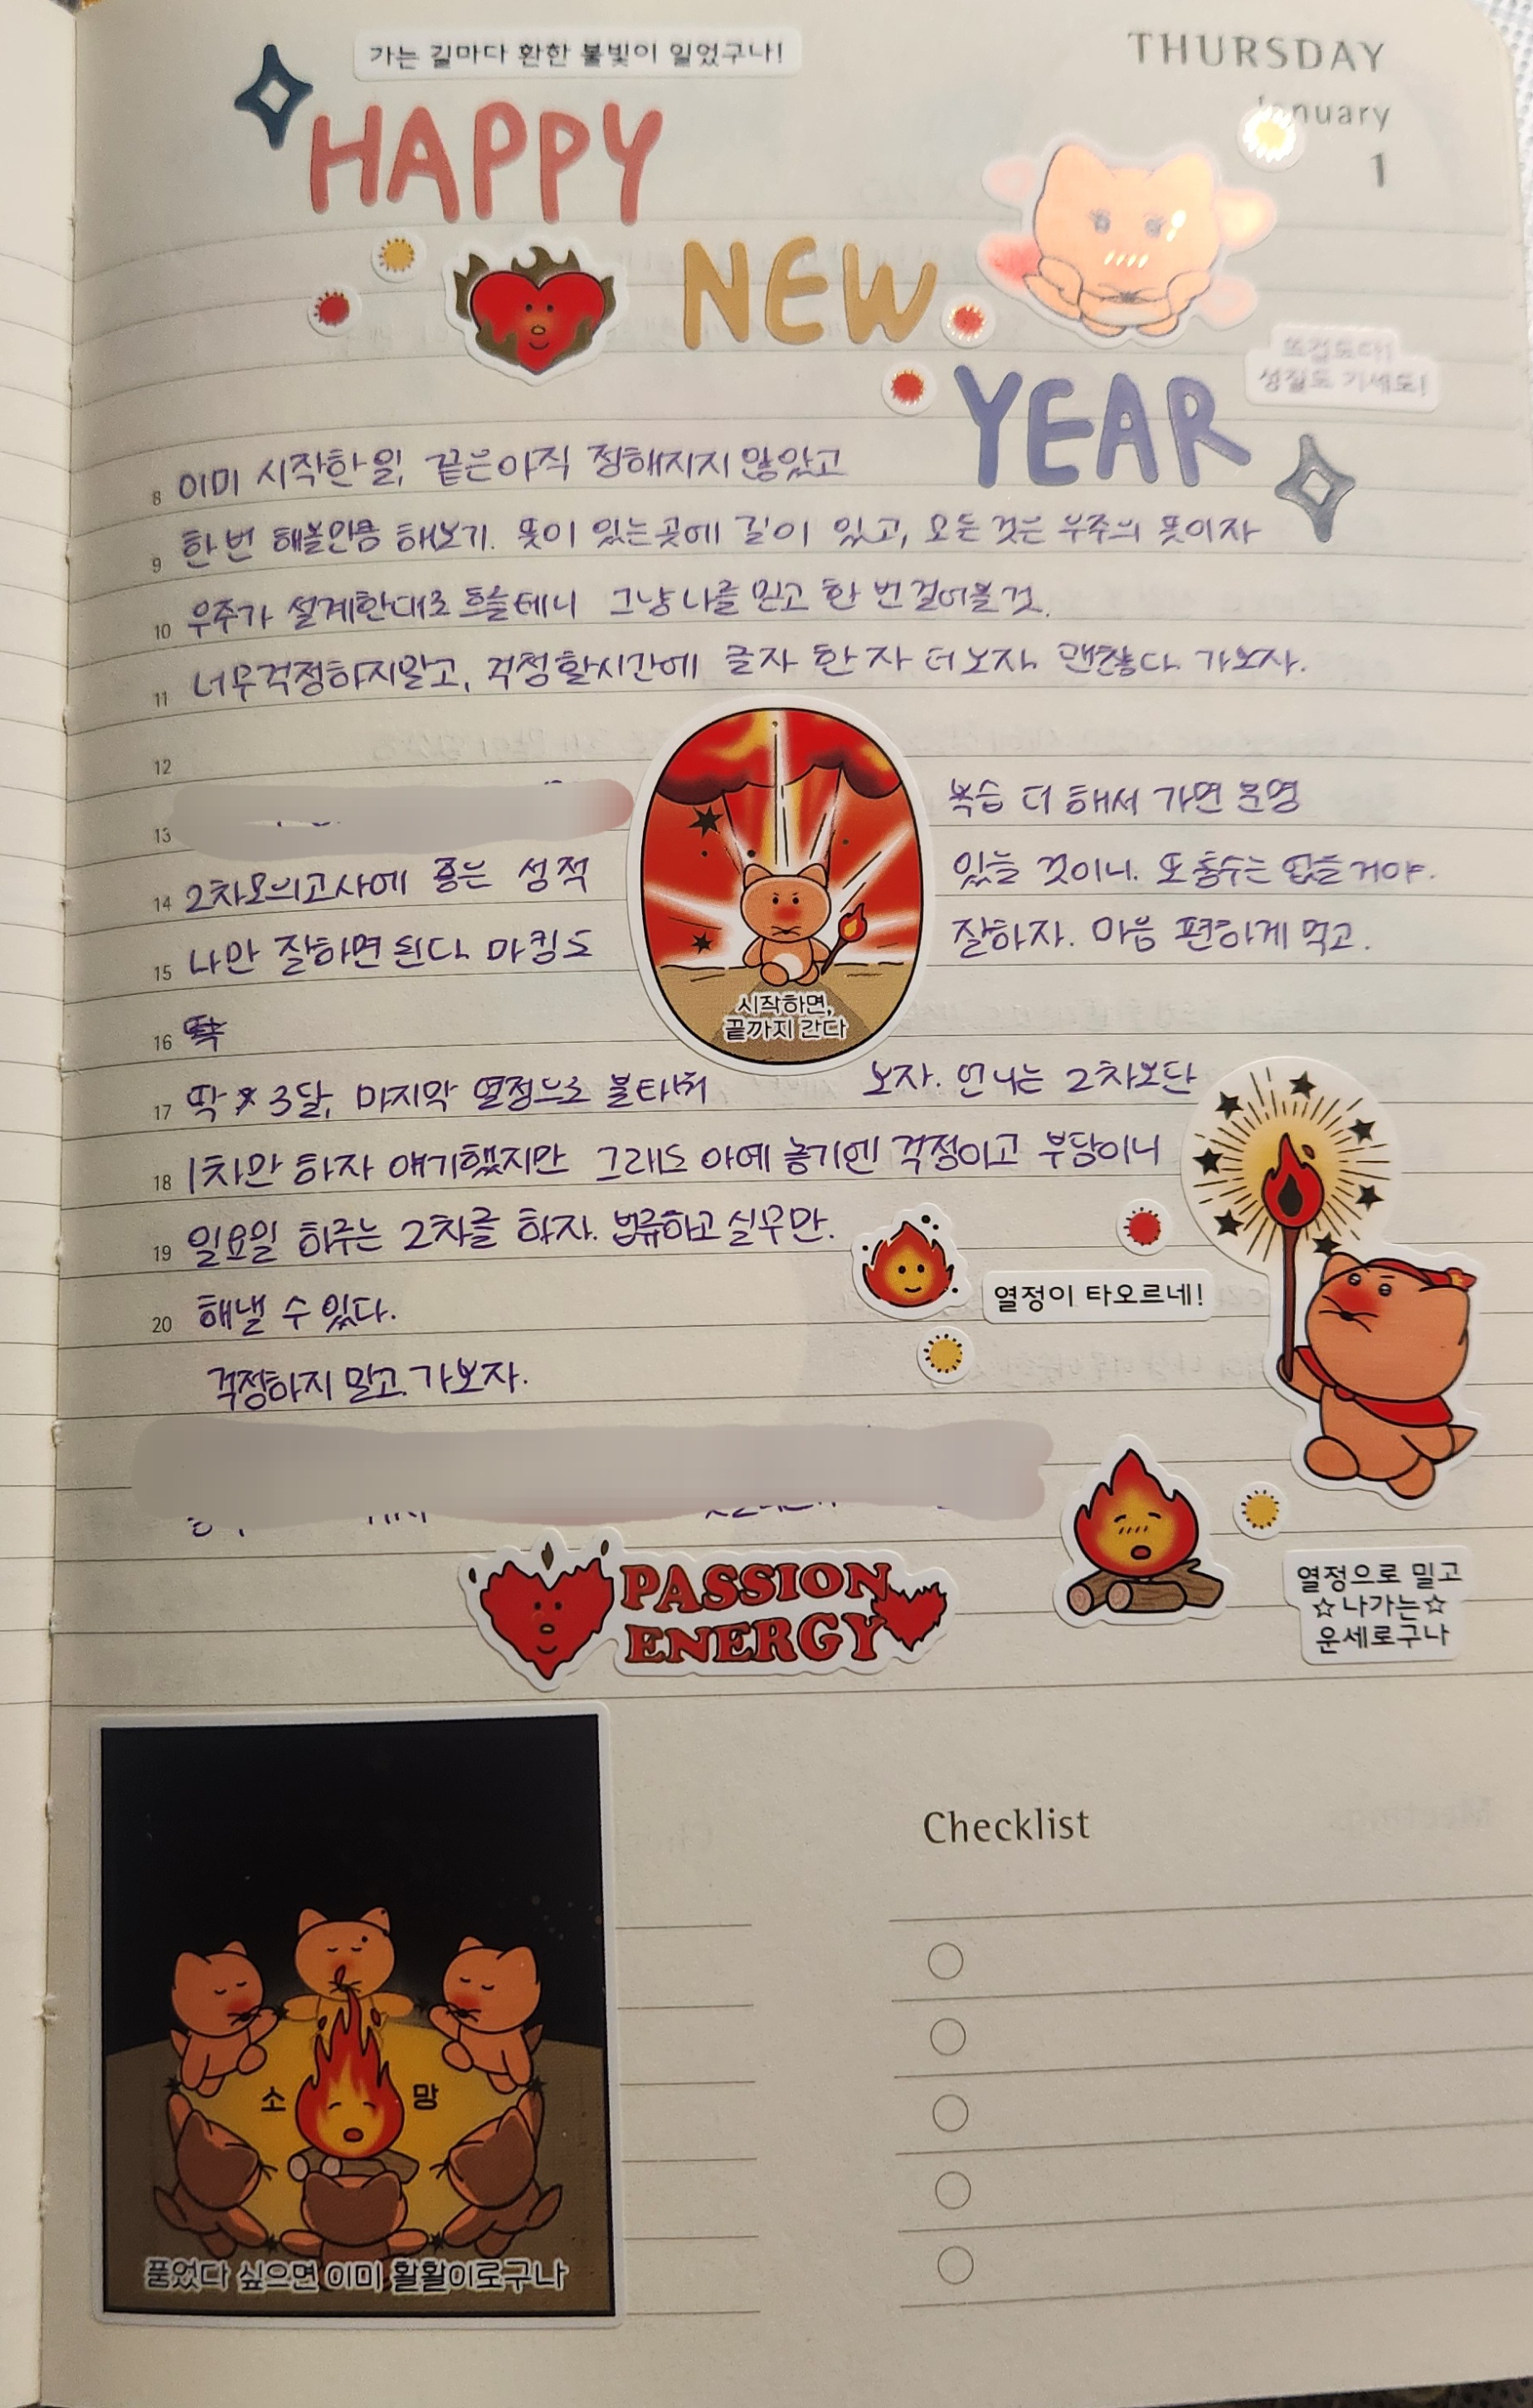 가는 길마다 환한 불빛이 일었구나!
THURSDAY
January
1
HAPPY
NEW
YEAR
뜨겁도다!
성질도 기세도!
8 이미 시작한 일, 끝은 아직 정해지지 않았고
9 한 번 해볼만큼 해보기. 뜻이 있는 곳에 길이 있고, 모든 것은 우주의 뜻이자
10 우주가 설계한대로 흐를테니 그냥 나를 믿고 한 번 걸어볼 것.
11 너무 걱정하지말고, 걱정할시간에 글자 한 자 더 보자. 괜찮다. 가보자.
12
13 복습 더 해서 가면 분명
14 2차모의고사에 좋은 성적 있을 것이니. 또 총수는 없을거야.
15 나만 잘하면 된다. 마킹도 잘하자. 마음 편하게 먹고.
시작하면,
끝까지 간다
16
17 딱 3달, 마지막 열정으로 불태워 보자. 언니는 2차보단
18 1차만 하자 얘기했지만 그래도 아예 놓기엔 걱정이고 부담이니
19 일요일 하루는 2차를 하자. 법규하고 실무만.
20 해낼 수 있다.
열정이 타오르네!
걱정하지 말고. 가보자.
PASSION
ENERGY
열정으로 밀고
☆나가는☆
운세로구나
Checklist
소 망
품었다 싶으면 이미 활활이로구나